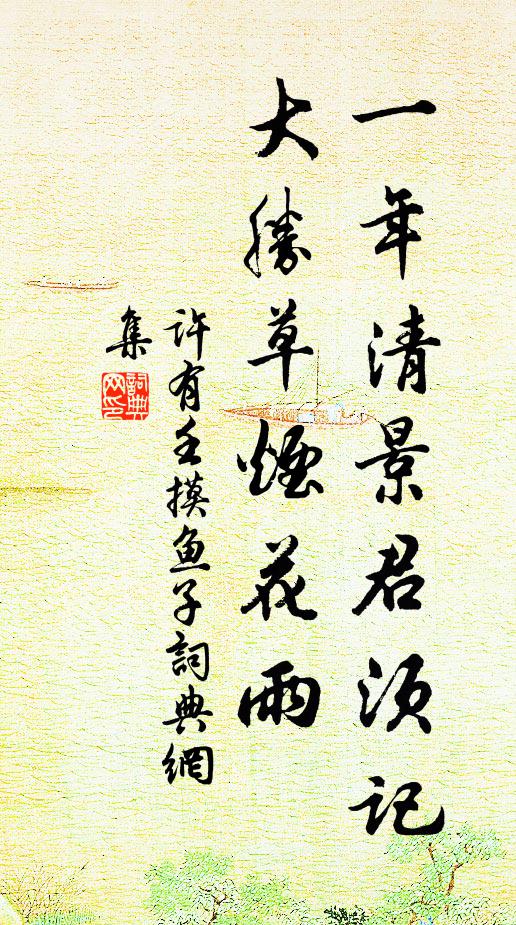 一年清景君须记
大勝草煙花雨
许有壬摸鱼子詞典網
集
詞典网印